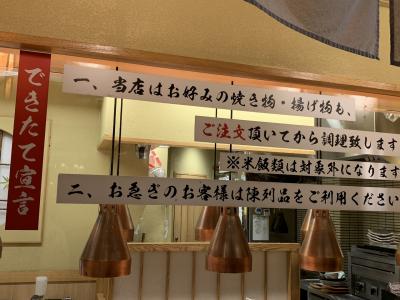 できたて宣言
一、当店はお好みの焼き物・揚げ物も、
ご注文頂いてから調理致します
※米飯類は対象外になります
二、お急ぎのお客様は陳列品をご利用ください